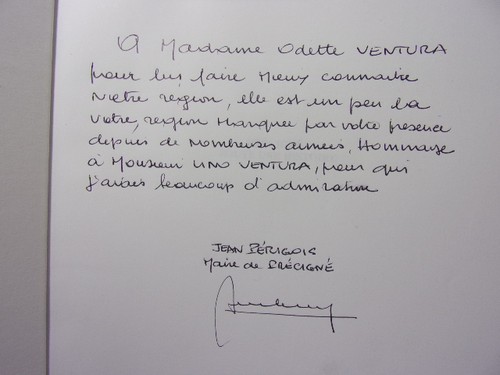 A Madame Odette VENTURA
pour lui faire mieux connaitre
Notre région, elle est un peu la
votre, région marquée par votre présence
depuis de nombreuses années, Hommage
à Monsieur LINO VENTURA, pour qui
j'avais beaucoup d'admiration
JEAN PÉRIGOIS
Maire de PRÉCIGNÉ